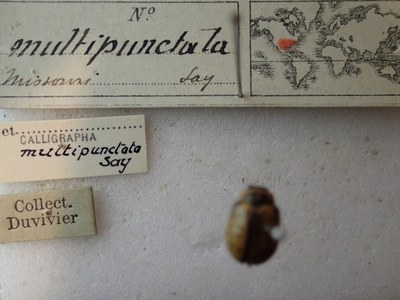 Nº
multipunctata
Missouri Say
et.
CALLIGRAPHA
multipunctata
Say
Collect.
Duvivier